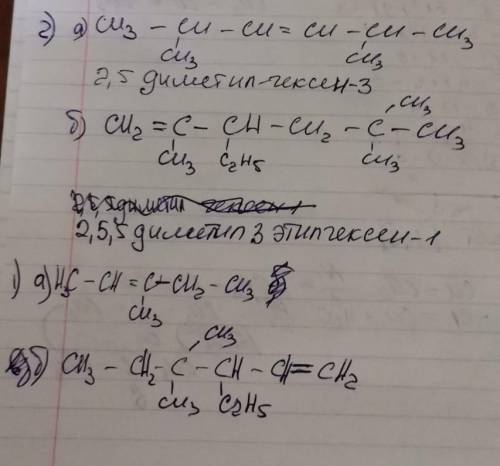 2) а) CH3 – CH – CH = CH – CH – CH3
CH3 CH3
2,5 диметил-гексен-3
CH3
б) CH2 = C – CH – CH2 – C – CH3
CH3 C2H5 CH3
2,5,5 диметил 3 этилгексен-1
1) а) H3C – CH = C – CH2 – CH3
CH3
CH3
б) CH3 – CH2 – C – CH – CH = CH2
CH3 C2H5